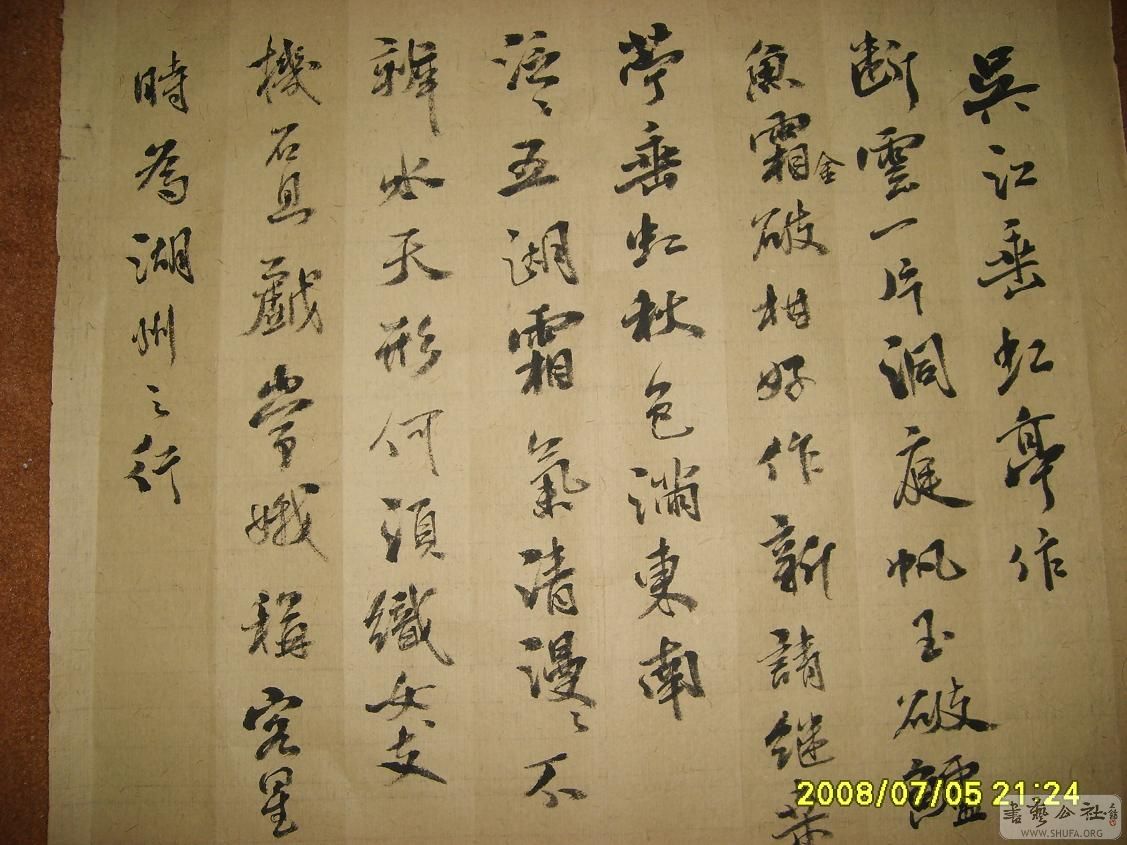 吳江垂虹亭作
斷雲一片洞庭帆玉破鱸
魚霜金破柑好作新請繼桑
苧垂虹秋色滿東南
泛〻五湖霜氣清漫〻不
辨水天形何須織女支
機石且戲常娥稱客星
時為湖州之行
2008/07/05 21:24
書藝公社
WWW.SHUFA.ORG